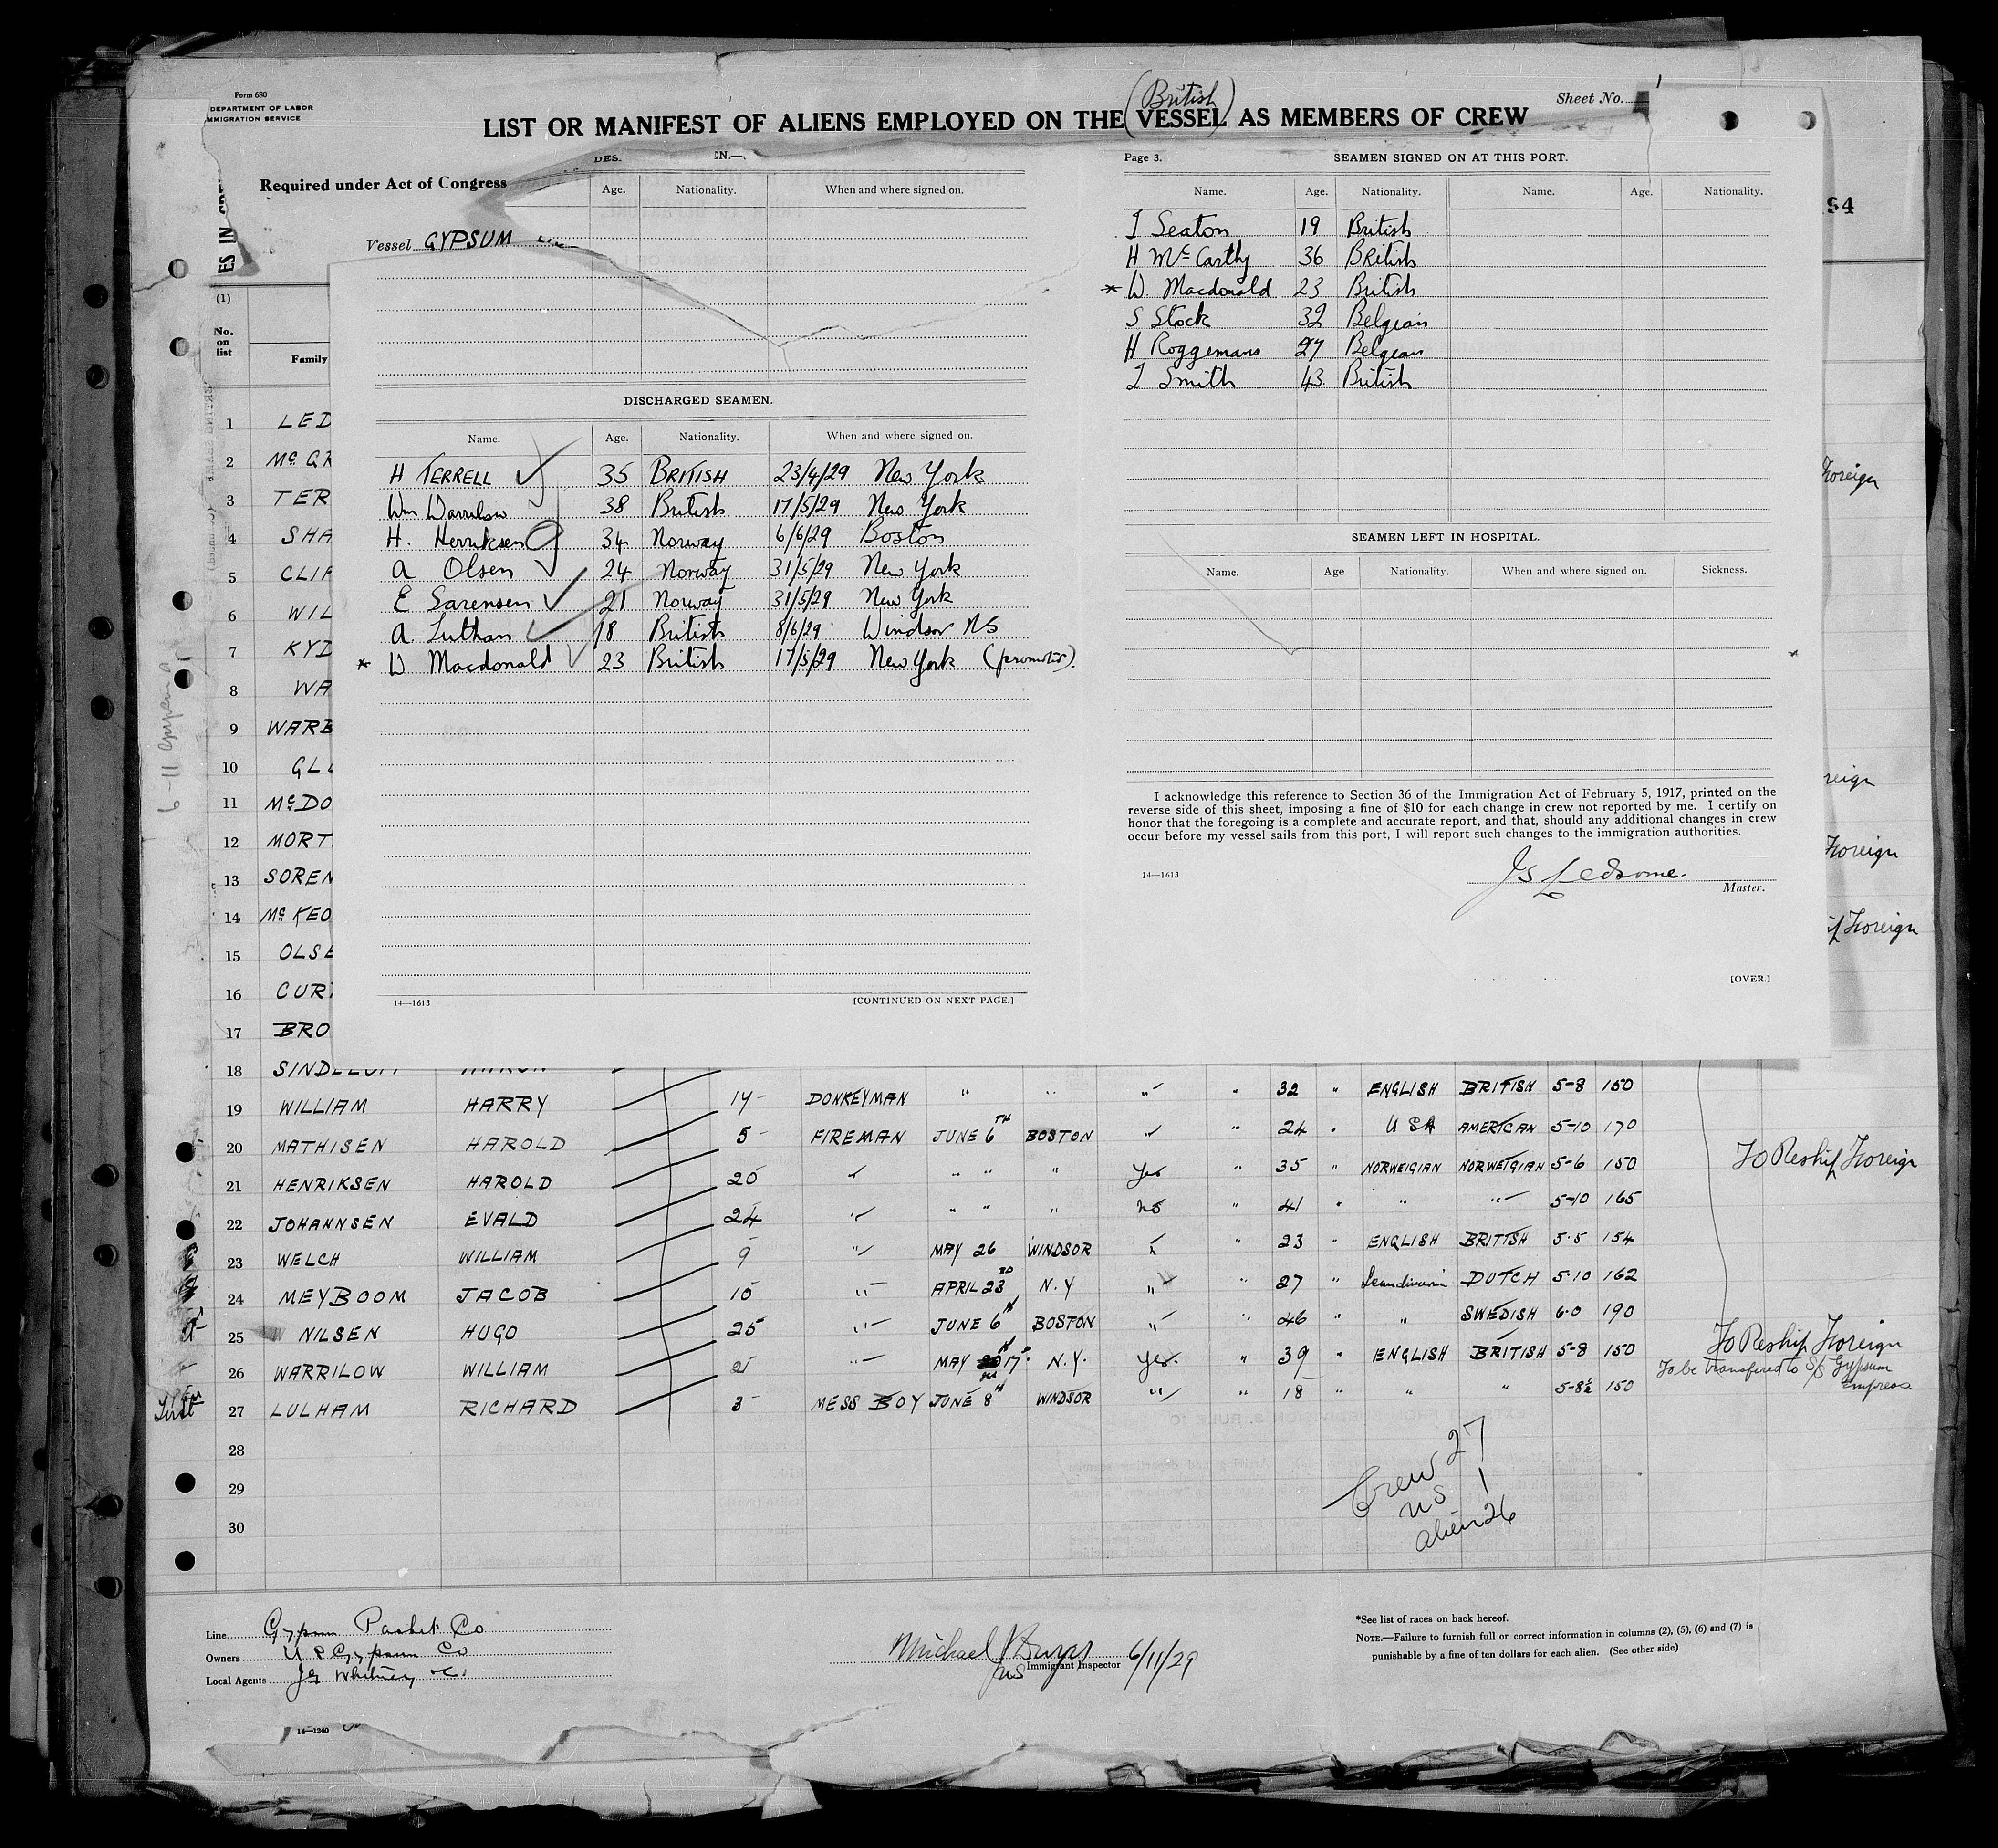 Form 680
DEPARTMENT OF LABOR
IMMIGRATION SERVICE
(British)
Sheet No. 1
LIST OR MANIFEST OF ALIENS EMPLOYED ON THE VESSEL AS MEMBERS OF CREW
Required under Act of Congress
Vessel GYPSUM
ES IN
94
(1)
No. on list
Family
DES.
Age. Nationality. When and where signed on.
DISCHARGED SEAMEN.
Name. Age. Nationality. When and where signed on.
H TERRELL 35 BRITISH 23/4/29 New York
Wm Warrilow 38 British 17/5/29 New York
H. Henriksen 34 Norway 6/6/29 Boston
A Olsen 24 Norway 31/5/29 New York
E Sorensen 21 Norway 31/5/29 New York
A. Lulham 18 British 8/6/29 Windsor NS
* W Macdonald 23 British 17/5/29 New York (promoted).
14—1613
[CONTINUED ON NEXT PAGE.]
Page 3.
SEAMEN SIGNED ON AT THIS PORT.
Name. Age. Nationality. Name. Age. Nationality.
J Seaton 19 British
H McCarthy 36 British
* W Macdonald 23 British
S Stock 32 Belgeain
H Roggemans 27 Belgean
J Smith 43 British
SEAMEN LEFT IN HOSPITAL.
Name. Age Nationality. When and where signed on. Sickness.
I acknowledge this reference to Section 36 of the Immigration Act of February 5, 1917, printed on the
reverse side of this sheet, imposing a fine of $10 for each change in crew not reported by me. I certify on
honor that the foregoing is a complete and accurate report, and that, should any additional changes in crew
occur before my vessel sails from this port, I will report such changes to the immigration authorities.
Js Ledsome.
Master.
14—1613
[OVER.]
1 LED
2 Mc GR
3 TER
4 SHA
5 CLIF
6 WIL
7 KYD
8 WA
9 WARB
10 GL
11 McDO
12 MORT
13 SOREN
14 Mc KEO
15 OLSE
16 CUR
17 BRO
18 SIND
Foreign
reign
Foreign
Foreign
19 WILLIAM HARRY 14 DONKEYMAN " " " " 32 " ENGLISH BRITISH 5-8 150
20 MATHISEN HAROLD 5 FIREMAN JUNE 6TH BOSTON " " 24 " USA AMERICAN 5-10 170
21 HENRIKSEN HAROLD 20 " " " " Yes " 35 " NORWEIGIAN NORWEIGIAN 5-6 150 To Reship Foreign
22 JOHANNSEN EVALD 24 " " " " no " 41 " " " 5-10 165
23 WELCH WILLIAM 9 " MAY 26 WINDSOR " " 23 " ENGLISH BRITISH 5-5 154
24 MEYBOOM JACOB 10 " APRIL 23RD N.Y " " 27 " Scandinavian DUTCH 5-10 162
25 NILSEN HUGO 25 " JUNE 6th BOSTON " " 46 " " SWEDISH 6-0 190
26 WARRILOW WILLIAM 2 " MAY 17th N.Y. Yes " 39 " ENGLISH BRITISH 5-8 150 To Reship Foreign
27 LULHAM RICHARD 3 MESS BOY JUNE 8th WINDSOR " " 18 " " " 5-8½ 150 To be transfered to S/S Gypsum Empress
28
29
30
Crew 27
US 1
Alien 26
Line Gypsum Packet Co
Owners U S Gypsum Co
Local Agents Js Whitney & Co
Immigrant Inspector 6/11/29
*See list of races on back hereof.
NOTE.—Failure to furnish full or correct information in columns (2), (5), (6) and (7) is
punishable by a fine of ten dollars for each alien. (See other side)
14—1240